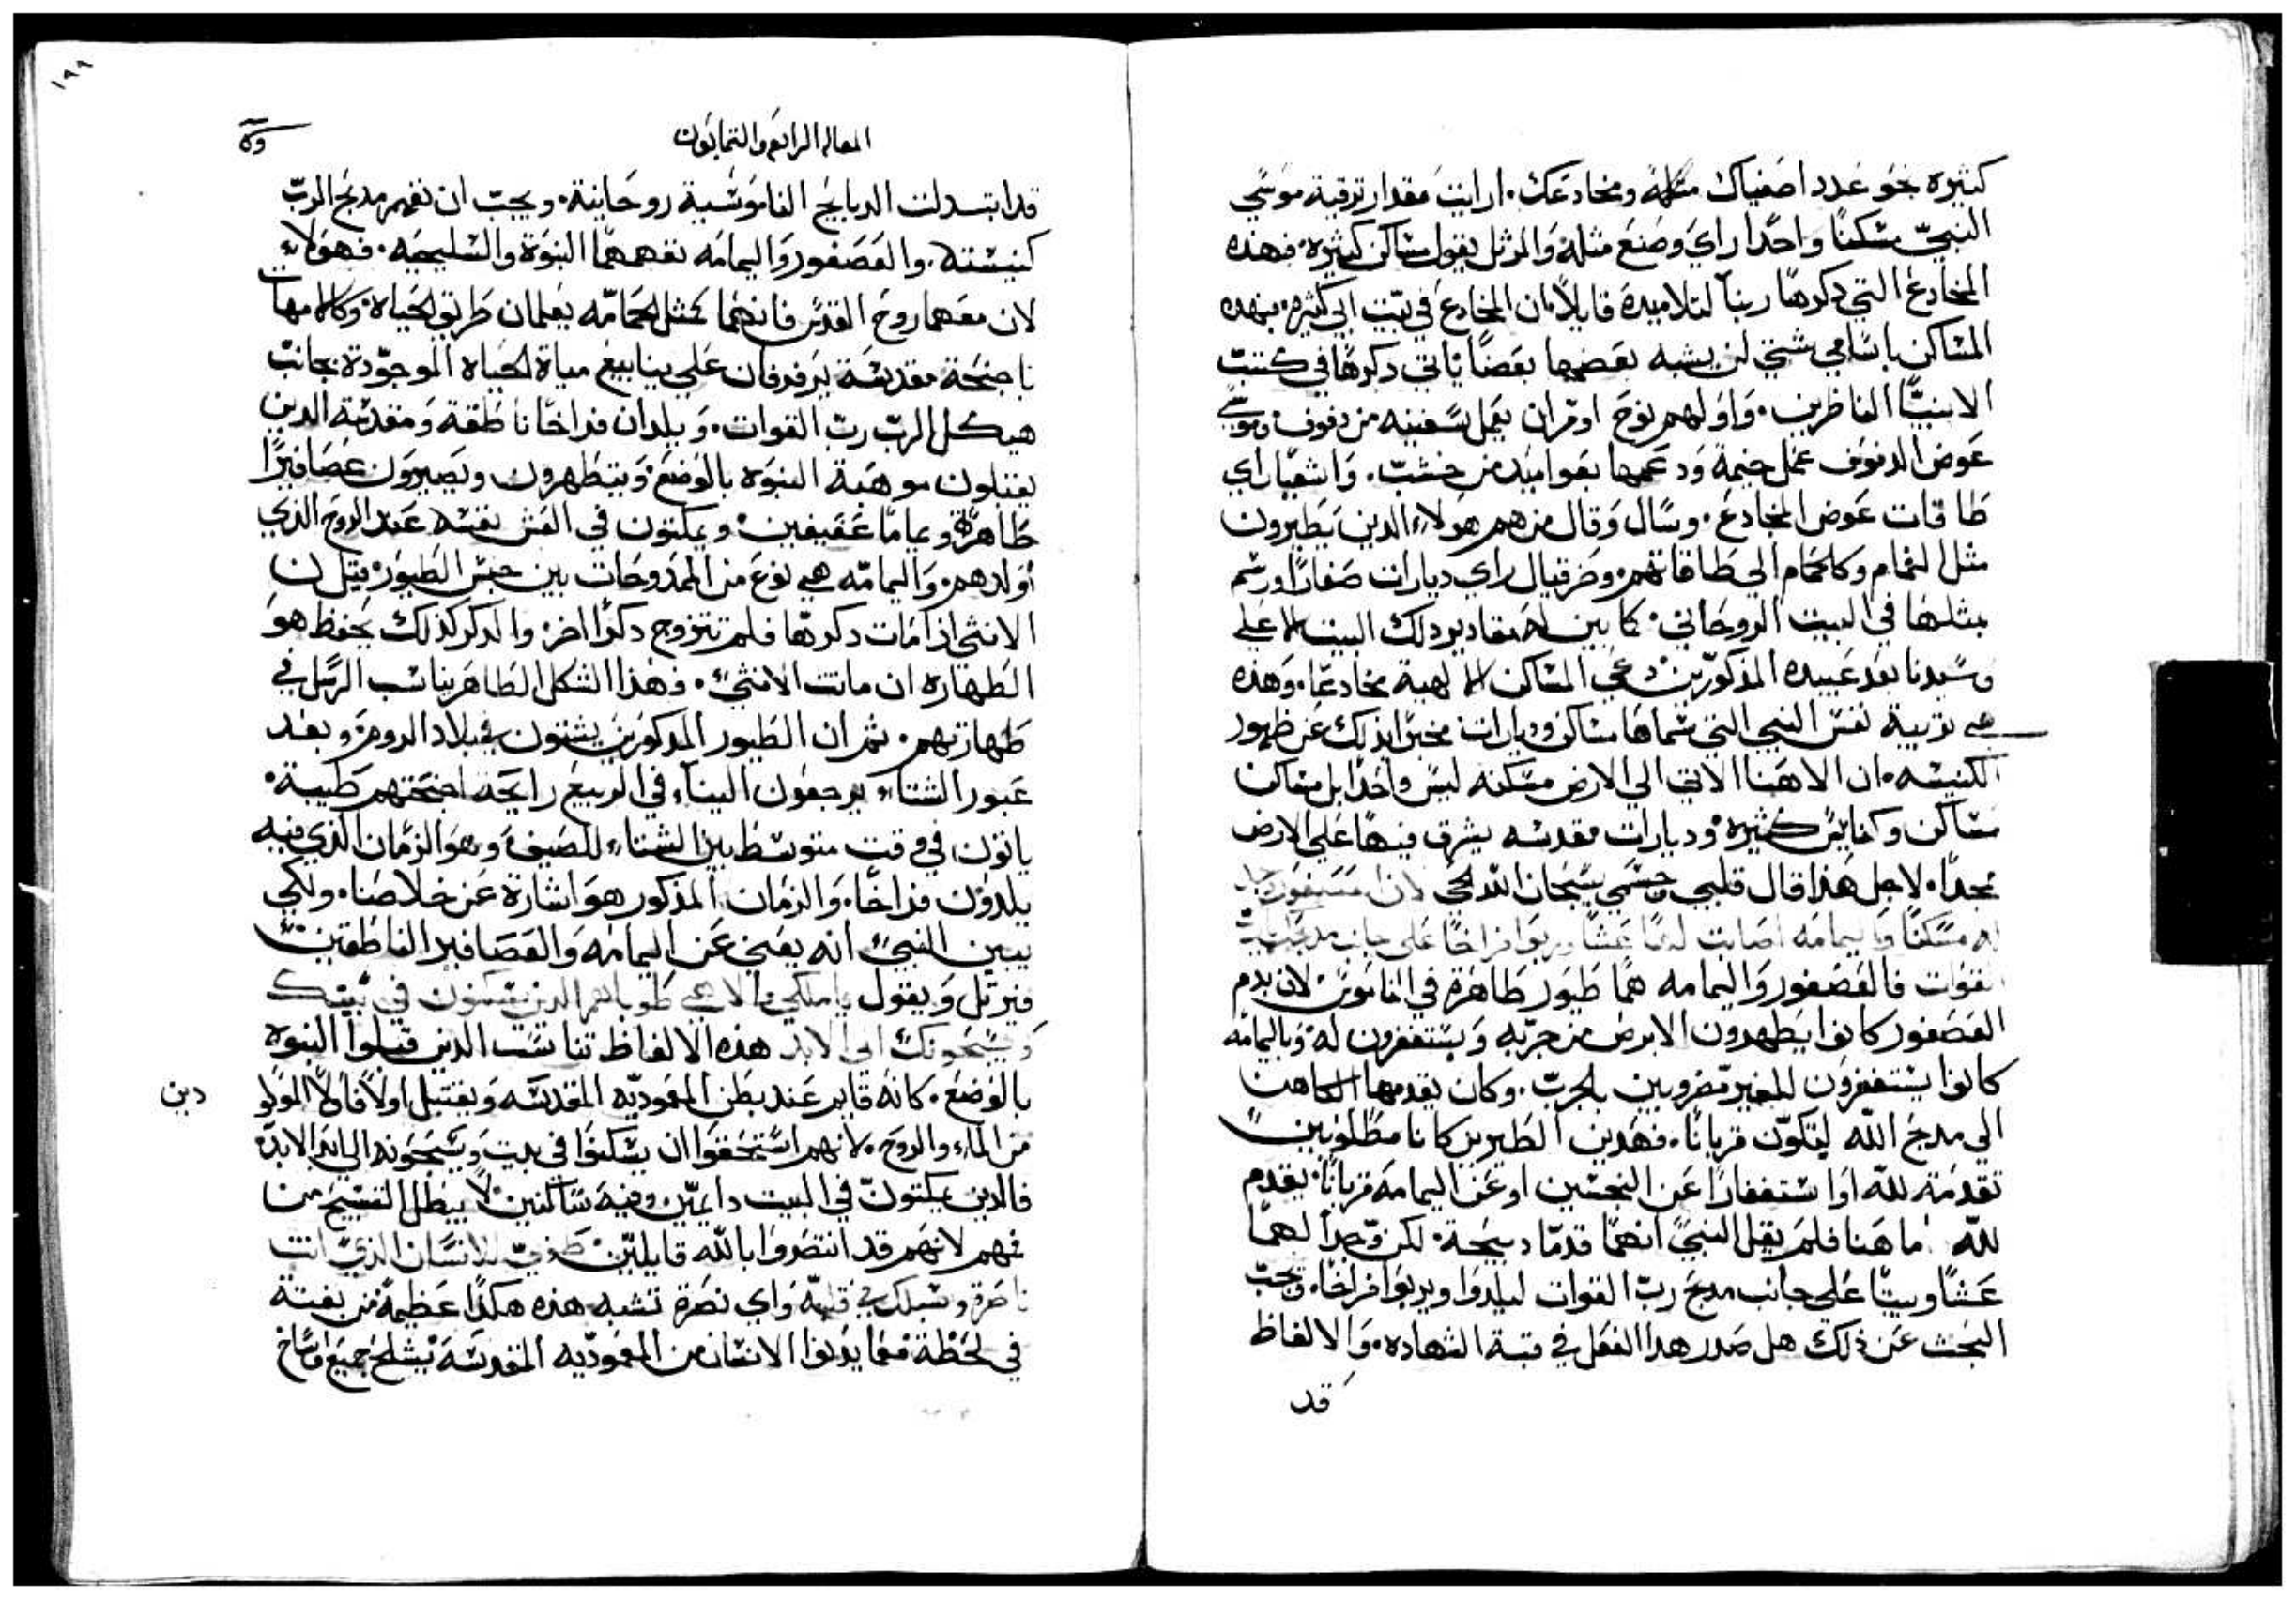 كثيره نحو عدد اصفياك مثلها ومخادعك. ارايت مقدار ترقية موسي
النبيّ مسكنًا واحدًا راي وصنع مثله والمرتل يقول مساكن كثيرة. فهذه
المخادع التي ذكرها ربنا لتلاميده قايلاً ان المخادع في بيت ابي كثيره. فهده
المساكن باسامي شتي لن يشبه بعضها بعضًا ياتي دكرها في كتب
الانبيا الناظرين. واولهم نوح اومر ان يعمل سفينه من دفوف. وموسي
عوض الدفوف عمل خيمة ودعمها بعواميد من خشب. واشعيا راي
طاقات عوض المخادع. وسال وقال من هم هولاء الدين يطيرون
مثل الغمام وكالحمام الي طاقاتهم. وحزقيال راي ديارات صغارًا ورسم
مثلها في البيت الروحاني. كما بين له مقادير دلك البيت الاعلي
وسيدنا بعد عبيده المذكورين دعي المساكن الالهية مخادعًا. وهذه
هي تربية نفس النبي التي سماها مساكن وديارات مخبرًا بذلك عن ظهور
الكنيسه. ان الاهنا الاتي الي الارض مسكنه ليس واحدًا بل مساكن
مساكن وكنايس كثيره وديارات مقدسه يشرق فيها علي الارض
مجدًا. لاجل هذا قال قلبي وجسمي يسبحان الله الحي لان العصفور وجد
له مسكنًا واليمامه اصابت لها عشًا وربوا فراخًا علي جانب مدبحك يارب
القوات فالعصفور واليمامه هما طيور طاهرة في الناموس. لان بدم
العصفور كانوا يطهرون الابرص من جربه ويستغفرون له. وباليمامه
كانوا يستغفرون للغير مضروبين بالجرب. وكان يقدمها الكاهن
الي مدبح الله ليتكون قربانًا. فهدين الطيرين كانا مطلوبين
تقدمة لله او استغفارًا عن النجسين او عن اليمامة قربانًا يقدم
لله اما هنا فلم يقل النبي انهما قدما دبيحة. لكن وجدا لهما
عشًا وبيتًا علي جانب مدبح رب القوات ليلدوا ويربوا فراخًا. ويجب
البحث عن ذلك هل صدر هدا الفعل في قبة الشهاده. والالفاظ
قد
١٩٩
المقاله الرابعه والثمانون
قد ابتدلت الدبايح الناموسية روحانية. ويجب ان نفهم مدبح الرب
كنيسته. والعصفور واليمامه نفهمهما النبوة والسليحيه. فهولاء
لان معهما روح القدس فانهما كمثل الحمامه يعلمان طريق الحياة. وكلامها
باجنحة مقدسة يرفرفان علي ينابيع مياة الحياه الموجودة بجانب
هيكل الرب رب القوات. ويلدان فراخًا ناطقة ومقدسة الدين
يقبلون موهبة النبوه بالوضع ويتطهرون ويصيرون عصافيرًا
طاهرة ويمامًا عفيفين. ويمكتون في العش نفسه عند الروح الذي
اولدهم. واليمامه هي نوع من الممدوحات بين جنس الطيور. قيل ان
الانثي اذا مات دكرها فلم تتزوج دكرًا اخر. والدكر كذلك يحفظ هو
الطهاره ان ماتت الانثي. فهذا الشكل الطاهر يناسب الرسل في
طهارتهم. ثم ان الطيور المذكورين يشتون في بلاد الروم. وبعد
عبور الشتاء يرجعون الينا في الربيع رايحة اجنحتهم طيبة.
ياتون في وقت متوسط بين الشتاء للصيف وهو الزمان الذي فيه
يلدون فراخًا. والزمان المذكور هو اشارة عن خلاصنا. ولكي
يبين النبي انه يعني عن اليمامه والعصافير الناطقين
فيرتل ويقول ياملكي والاهي طوباهم الدين يسكنون في بيتك
ويسبحونك الي الابد هذه الالفاظ تناسب الدين قبلوا النبوه
بالوضع. كانه قايم عند بطن المعموديه المقدسه ويقتبل اولاً فاولاً المولو
دين
من الماء والروح. لانهم استحقوا ان يسكنوا في بيت ويسبحونه الي ابد الابد
فالدين يمكتون في البيت دايمين وفيه ساكنين لا يبطل التسبيح من
فمهم لانهم قد انتصروا بالله قايلين طوبي للانسان الذي انت
ناصرة وسبلك في قلبه واي نصرة تشبه هذه هكذا عظيمة من بغتة
في لحظة فما يدنوا الانسان من المعموديه المقدسة يشلح جميع اوساخ